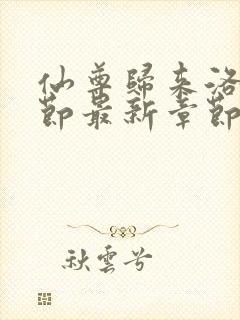 仙尊歸來洛
節最新章節
秋雲兮